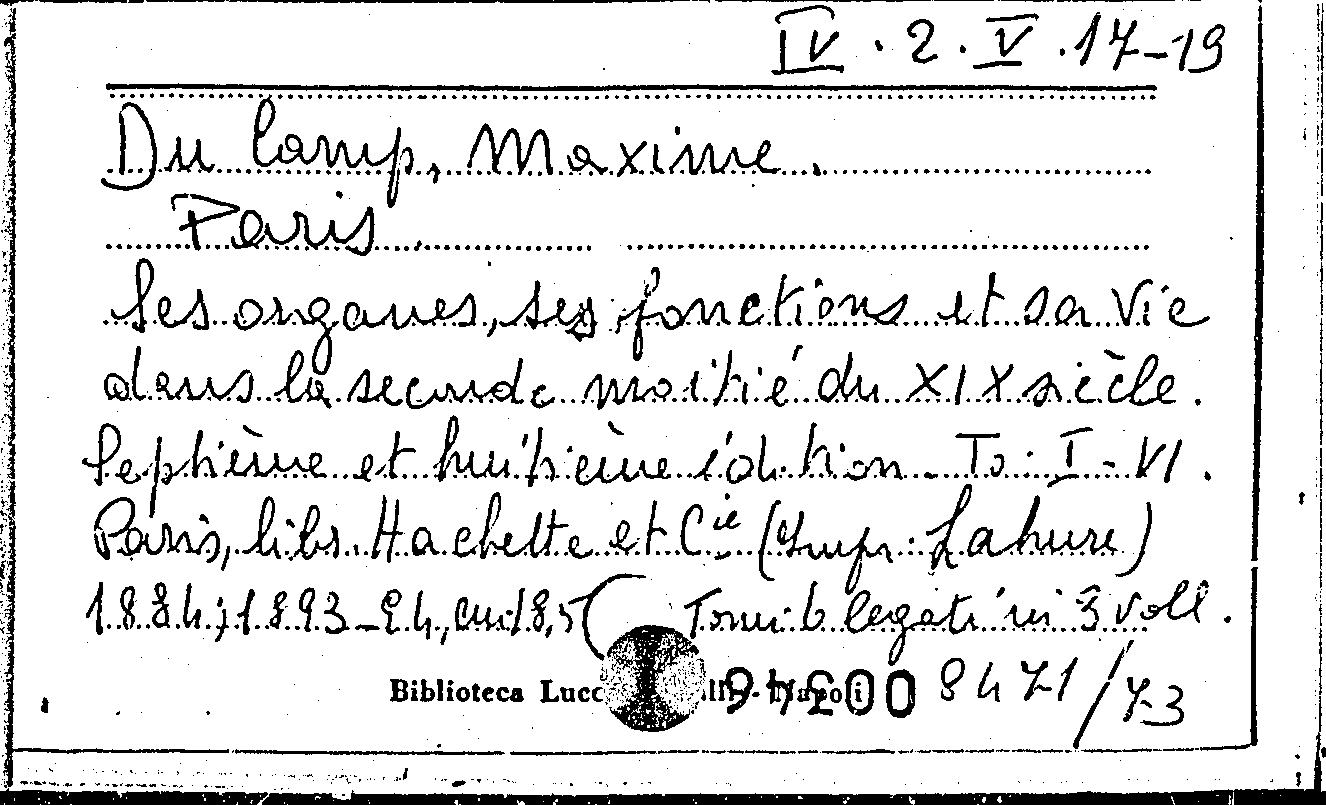 IV. 2. V. 17-19
Du Camp, Maxime.
Paris
ses organes, ses fonctions et sa vie
dans la seconde moitié du XIX siècle.
Septième et huitième édition. To: I-VI.
Paris, libr. Hachette et Cie (Impr. Lahure)
1884; 1893-94, cm. 18,5 ( Tomi 6 legati in 3 voll.
Biblioteca Lucc Napoli 8471/73